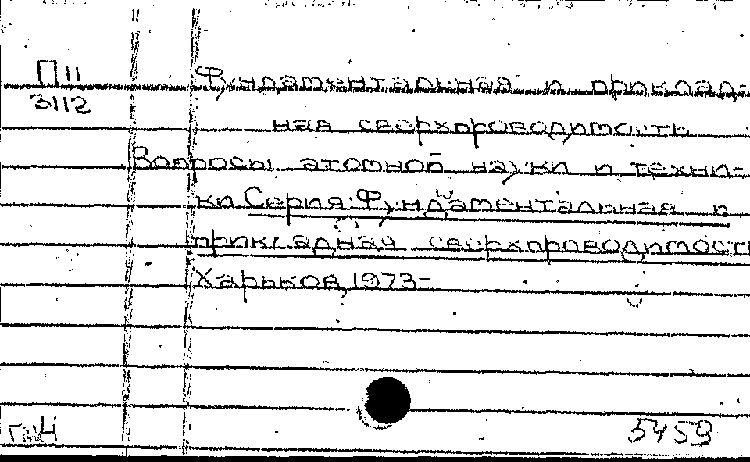 П11
3112
Фундаментальная и приклад-
ная сверхпроводимость
Вопросы атомной науки и техни-
ки Серия: Фундаментальная и
прикладная сверхпроводимость
Харьков, 1973-
5459